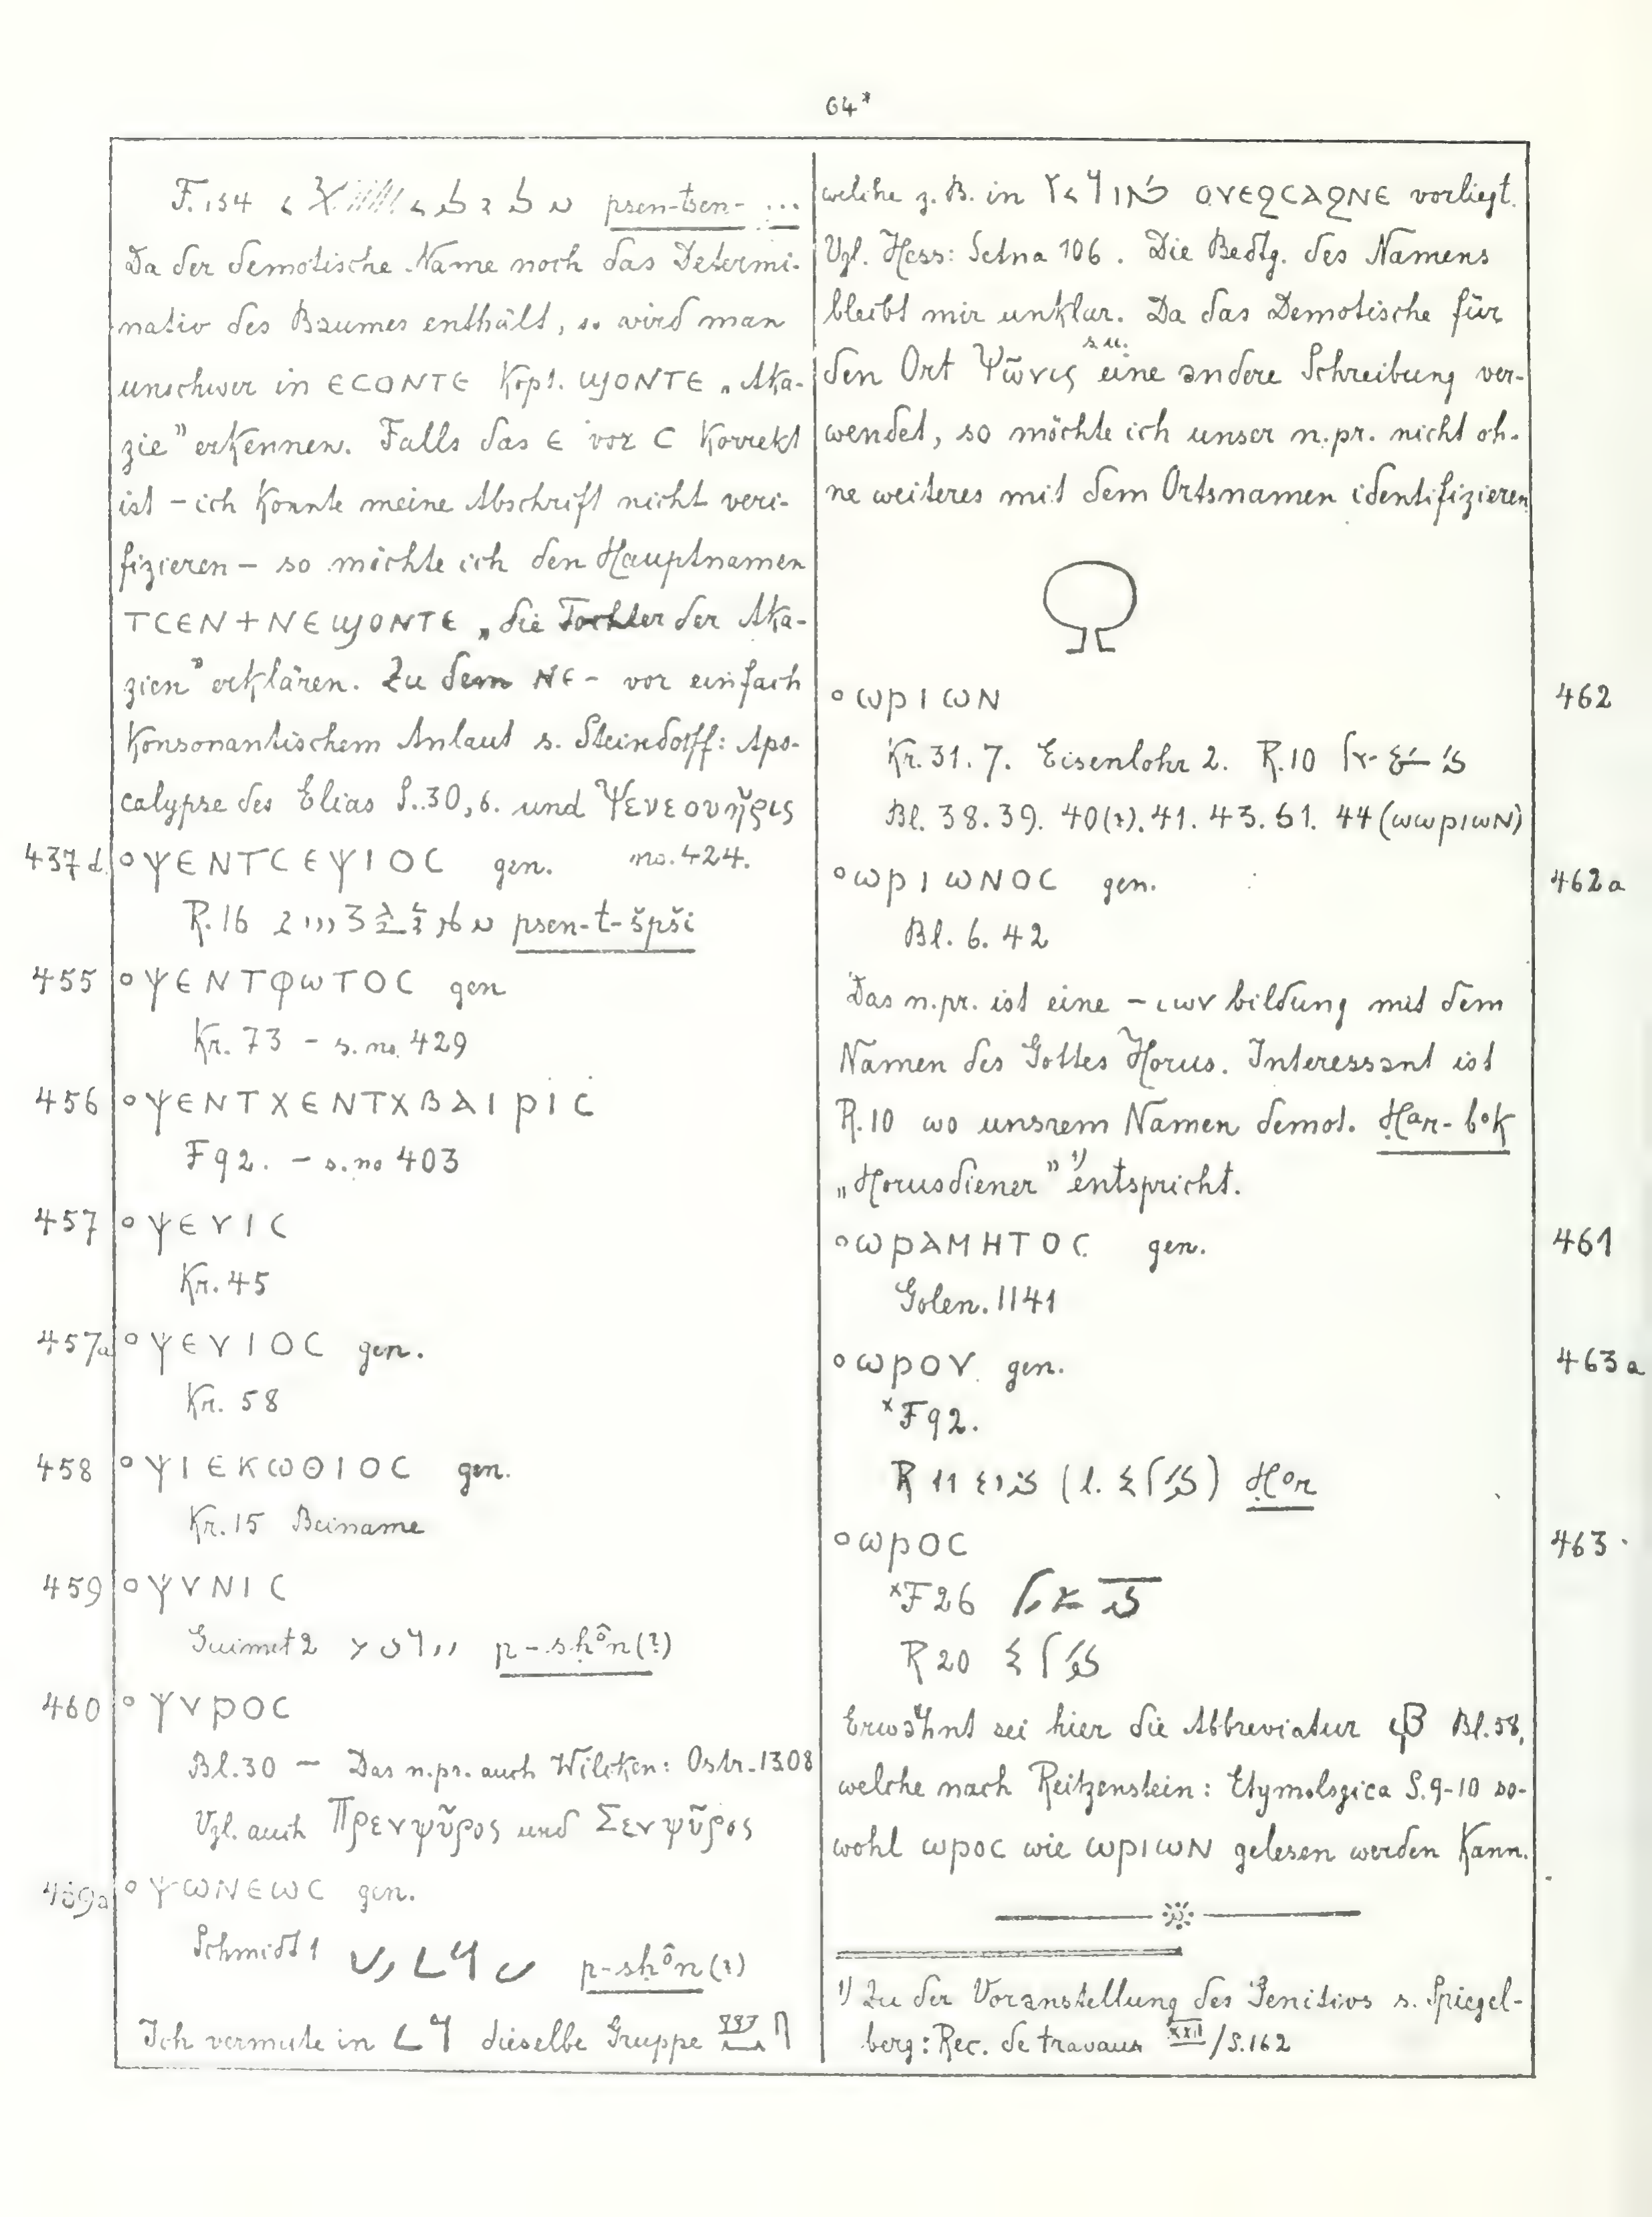 64*
F. 154 psen-tsen- ...
Da der demotische Name noch das Determi-
nativ des Baumes enthält, so wird man
unschwer in ЄCONTЄ Kopt. ϢONTЄ „Aka-
zie” erkennen. Falls das Є vor C korrekt
ist – ich konnte meine Abschrift nicht veri-
fizieren – so möchte ich den Hauptnamen
TCЄN+NЄϢONTЄ „die Tochter der Aka-
zien” erklären. Zu dem NЄ- vor einfach
konsonantischem Anlaut s. Steindorff: Apo-
calypse des Elias S. 30, 6. und Ψενεουῆρις
no. 424.
437d ° ΨЄNTCЄΨIOC gen.
R. 16 psen-t-špši
455 ° ΨЄNTΦωTOC gen
Kr. 73 – s. no. 429
456 ° ΨЄNTXЄNTXBAIPIC
F 92. – s. no 403
457 ° ΨЄYIC
Kr. 45
457a ° ΨЄYIOC gen.
Kr. 58
458 ° ΨIЄKωΘIOC gen.
Kr. 15 Beiname
459 ° ΨYNIC
Guimet 2 p-sḥôn(?)
460 ° ΨYPOC
Bl. 30 — Das n.pr. auch Wilcken: Ostr. 1308
Vgl. auch Πρενψῦρος und Σενψῦρος
459a ° ΨωNЄωC gen.
Schmidt 1 p-sḥôn(?)
Ich vermute in dieselbe Gruppe
welche z. B. in OYЄϨCAϨNЄ vorliegt.
Vgl. Hess: Setna 106. Die Bedtg. des Namens
bleibt mir unklar. Da das Demotische für
den Ort Ψῶνις s.u. eine andere Schreibung ver-
wendet, so möchte ich unser n.pr. nicht oh-
ne weiteres mit dem Ortsnamen identifizieren
Ω
° ωPIωN 462
Kr. 31. 7. Eisenlohr 2. R. 10
Bl. 38. 39. 40(?). 41. 43. 61. 44 (ωωPIωN)
° ωPIωNOC gen. 462a
Bl. 6. 42
Das n.pr. ist eine -ιων bildung mit dem
Namen des Gottes Horus. Interessant ist
R. 10 wo unsrem Namen demot. Ḥar-bok
„Horusdiener” 1) entspricht.
° ωPAMHTOC gen. 461
Golen. 1141
° ωPOY gen. 463a
×F 92.
R 11 (l. ) Ḥor
° ωPOC 463
×F 26
R 20
Erwähnt sei hier die Abbreviatur Bl. 58,
welche nach Reitzenstein: Etymologica S. 9-10 so-
wohl ωPOC wie ωPIωN gelesen werden kann.
1) Zu der Voranstellung des Genitivs s. Spiegel-
berg: Rec. de travaux XXII / S. 162